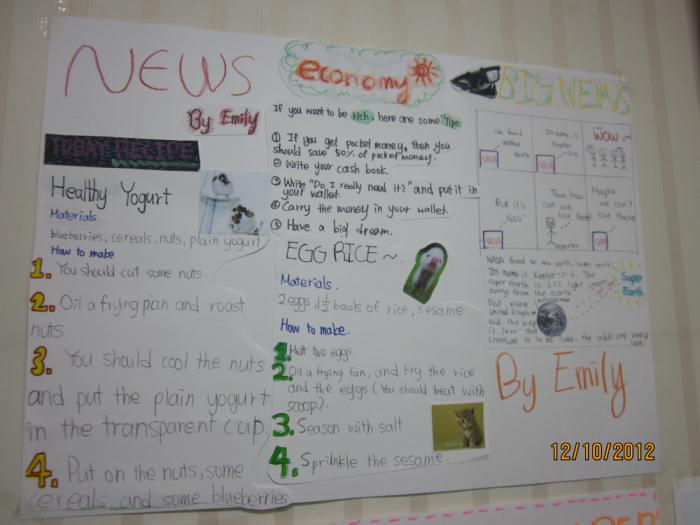 NEWS
By Emily
TODAY RECIPE
Healthy Yogurt
Materials
blueberries, cereals, nuts, plain yogurt
How to make
1. You should cut some nuts.
2. Oil a frying pan and roast
nuts
3. You should cool the nuts
and put the plain yogurt
in the transparent cup.
4. Put on the nuts, some
cereals, and some blueberries
economy
If you want to be rich, here are some Tips
① If you get pocket money, then you
should save 50% of pocket money.
② Write your cash book.
③ Write "Do I really need it?" and put it in
your wallet.
④ Carry the money in your wallet.
⑤ Have a big dream.
EGG RICE ~
Materials
2 eggs, 1 1/2 bowls of rice, sesame
How to make.
1. Melt two eggs
2. Oil a frying fan, and fry the rice
and the eggs (You should beat with
scoop).
3. Season with salt
4. Sprilnkle the sesame.
BIG NEWS
We found
another
earth
NASA
Its name is
Kepler
NASA
WOW
But it's
NASA
Then how
can we
live there
Reporter
Maybe
we can't
live there
NASA
NASA found the new earth, "super earth".
Its name is Kepler-22 b. The
super earth is
away from the earth
But even
United Kingdom
said the
is
creature is to be
Super
Earth
By Emily
12/10/2012